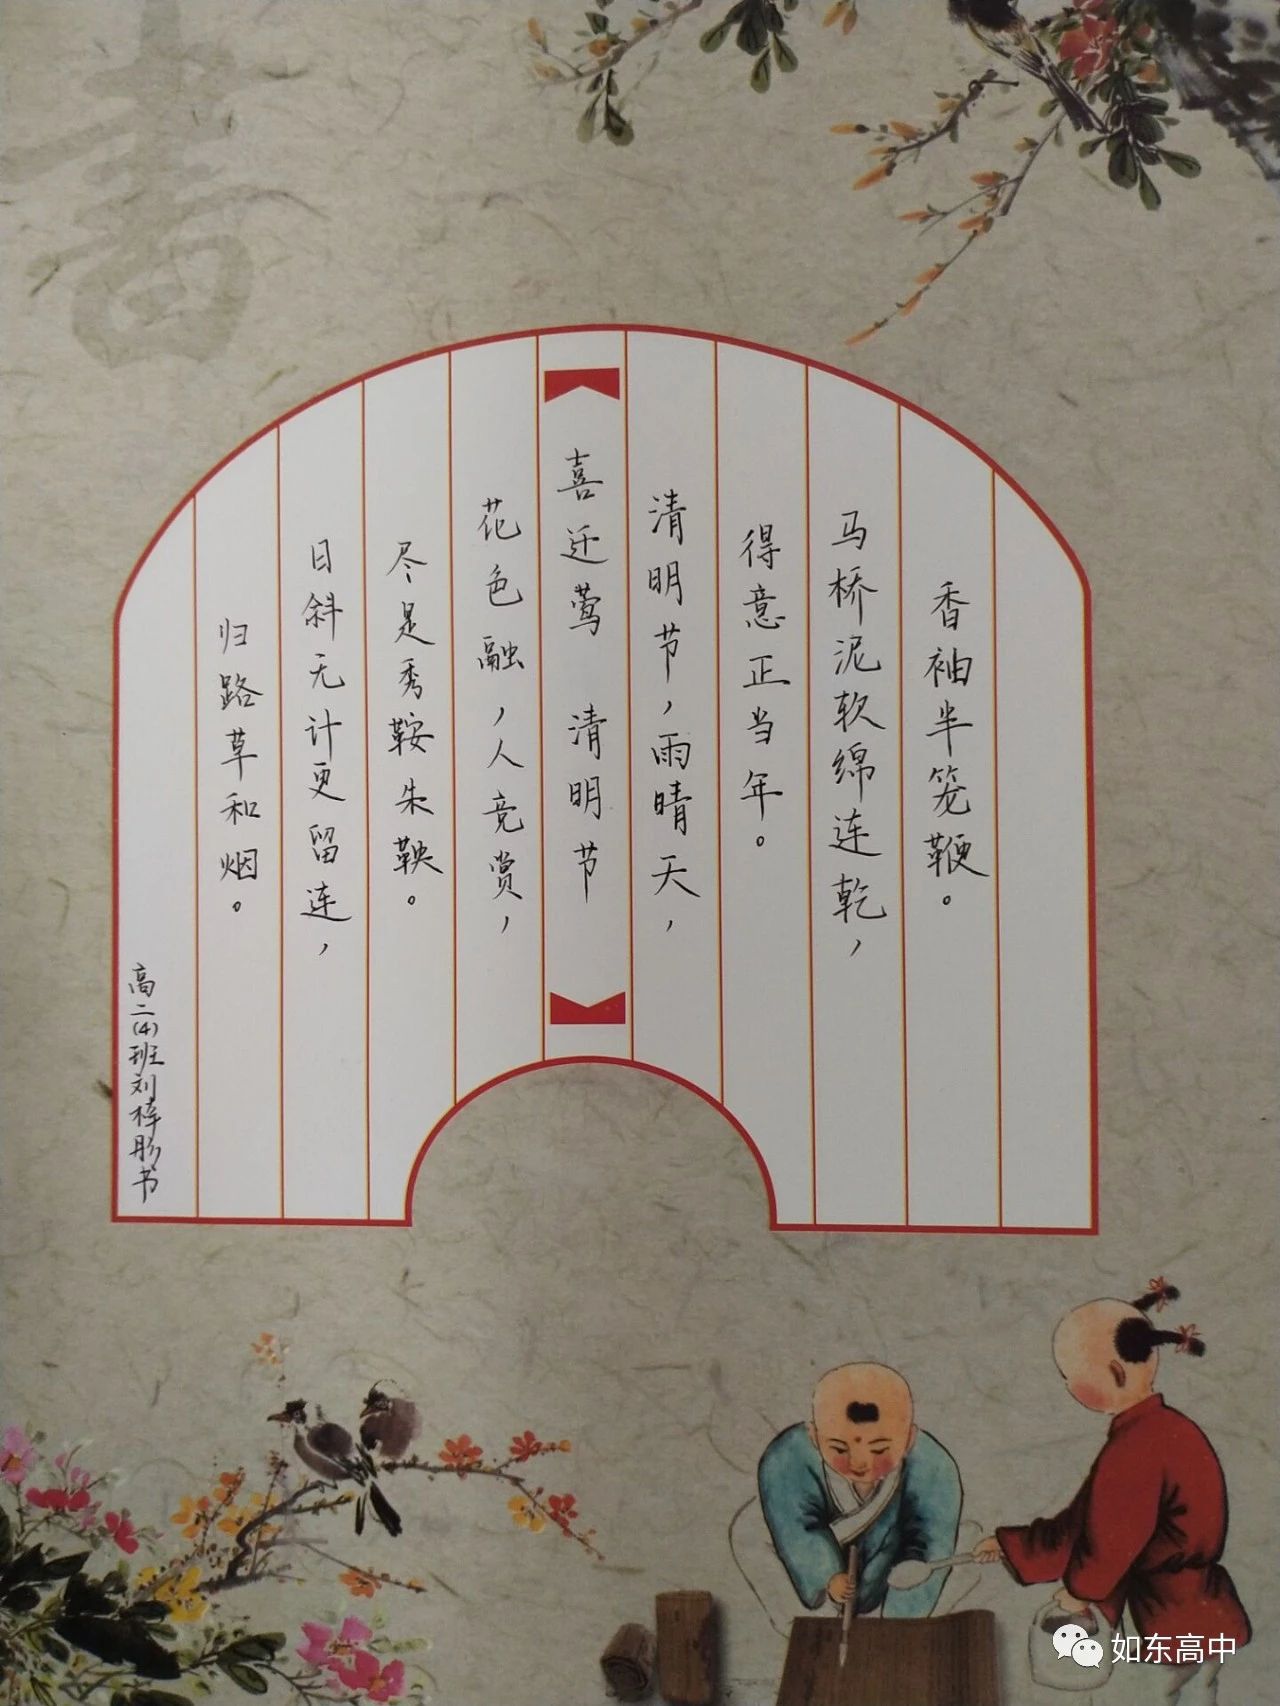 喜迁莺 清明节
清明节，雨晴天，
得意正当年。
马桥泥软绵连乾，
香袖半笼鞭。
花色融，人竞赏，
尽是秀鞍朱鞅。
日斜无计更留连，
归路草和烟。
高二(4)班刘梓彤书
書
如东高中